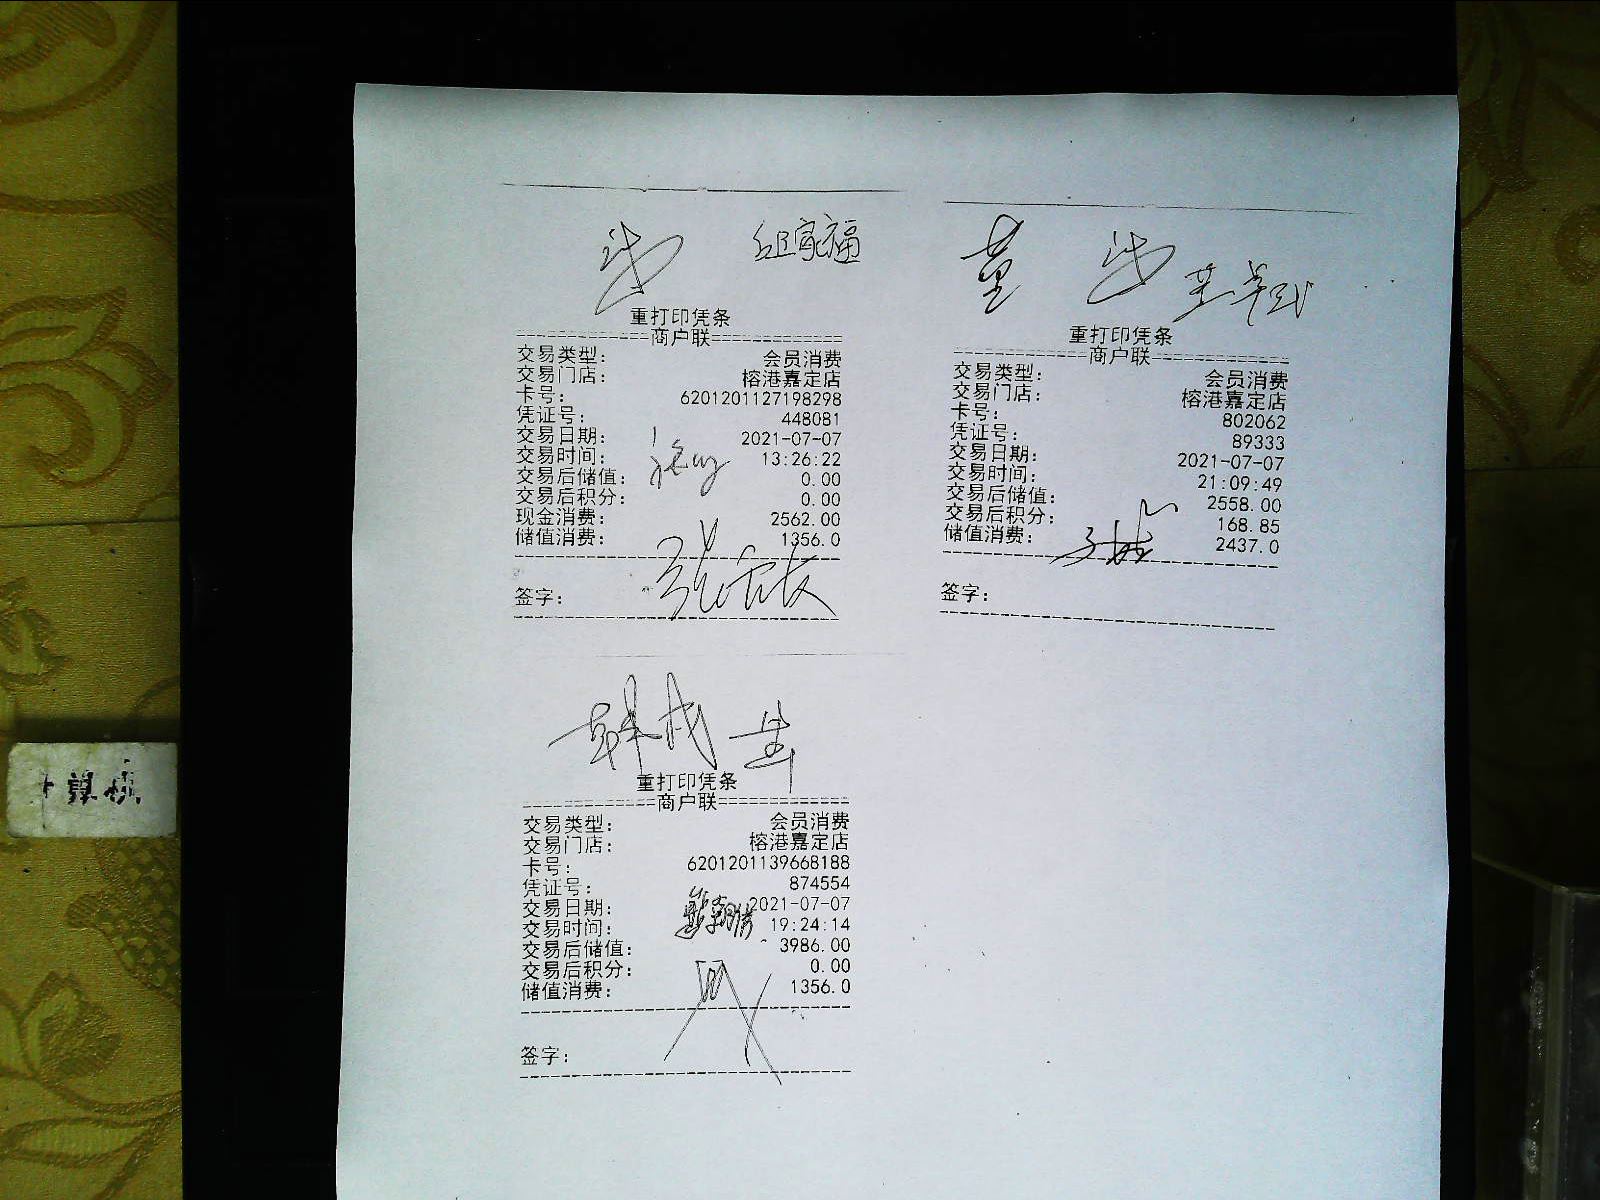 邱家福
重打印凭条
================商户联================
交易类型: 会员消费
交易门店: 榕港嘉定店
卡号: 6201201127198298
凭证号: 448081
交易日期: 2021-07-07
交易时间: 13:26:22
交易后储值: 0.00
交易后积分: 0.00
现金消费: 2562.00
储值消费: 1356.0
签字:
董
重打印凭条
================商户联================
交易类型: 会员消费
交易门店: 榕港嘉定店
卡号: 802062
凭证号: 89333
交易日期: 2021-07-07
交易时间: 21:09:49
交易后储值: 2558.00
交易后积分: 168.85
储值消费: 2437.0
签字:
重打印凭条
================商户联================
交易类型: 会员消费
交易门店: 榕港嘉定店
卡号: 6201201139668188
凭证号: 874554
交易日期: 2021-07-07
交易时间: 19:24:14
交易后储值: 3986.00
交易后积分: 0.00
储值消费: 1356.0
签字: